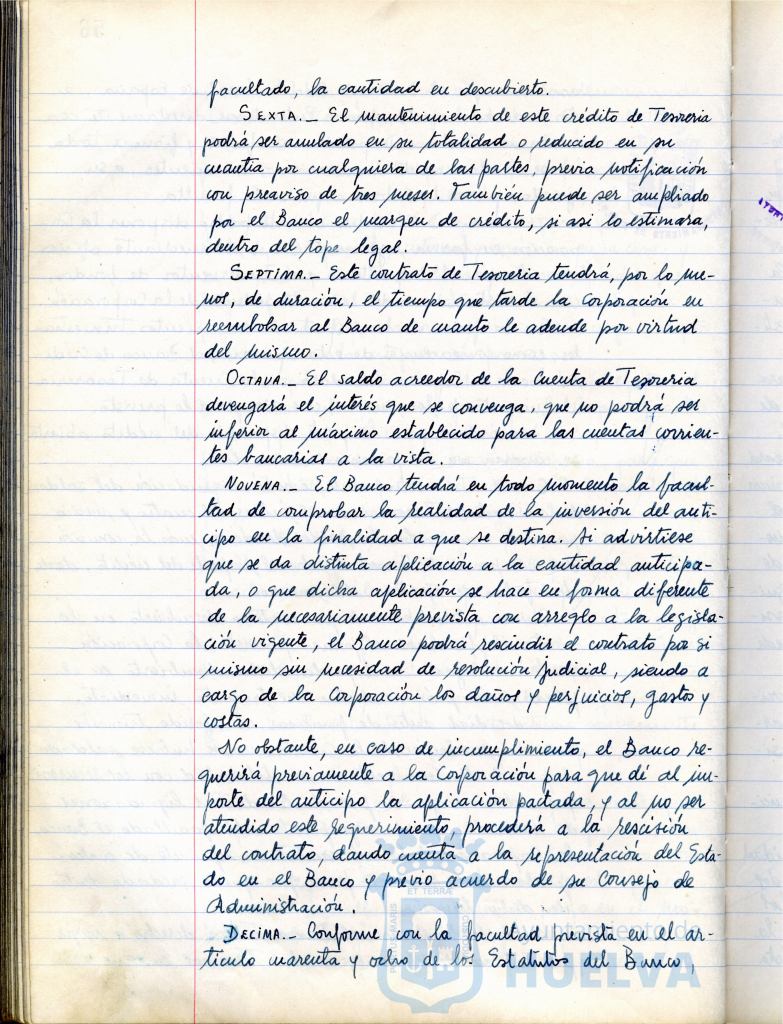 facultado, la cantidad en descubierto.
SEXTA.- El mantenimiento de este crédito de Tesorería
podrá ser anulado en su totalidad o reducido en su
cuantía por cualquiera de las partes, previa notificación
con preaviso de tres meses. También puede ser ampliado
por el Banco el margen de crédito, si asi lo estimara,
dentro del tope legal.
SEPTIMA.- Este contrato de Tesorería tendrá, por lo me-
nos, de duración, el tiempo que tarde la Corporación en
reembolsar al Banco de cuanto le adende por virtud
del mismo.
OCTAVA.- El saldo acreedor de la Cuenta de Tesorería
devengará el interés que se convenga, que no podrá ser
inferior al máximo establecido para las cuentas corrien-
tes bancarias a la vista.
NOVENA.- El Banco tendrá en todo momento la facul-
tad de comprobar la realidad de la inversión del anti-
cipo en la finalidad a que se destina. Si advirtiese
que se da distinta aplicación a la cantidad anticipa-
da, o que dicha aplicación se hace en forma diferente
de la necesariamente prevista con arreglo a la legisla-
ción vigente, el Banco podrá rescindir el contrato por si
mismo sin necesidad de resolución judicial, siendo a
cargo de la Corporación los daños y perjuicios, gastos y
costas.
No obstante, en caso de incumplimiento, el Banco re-
querirá previamente a la Corporación para que dé al im-
porte del anticipo la aplicación pactada, y al no ser
atendido este requerimiento, procederá a la rescisión
del contrato, dando cuenta a la representación del Esta-
do en el Banco y previo acuerdo de su Consejo de
Administración.
DECIMA.- Conforme con la facultad prevista en el ar-
tículo cuarenta y ocho de los Estatutos del Banco,
Ayuntamiento de
HUELVA